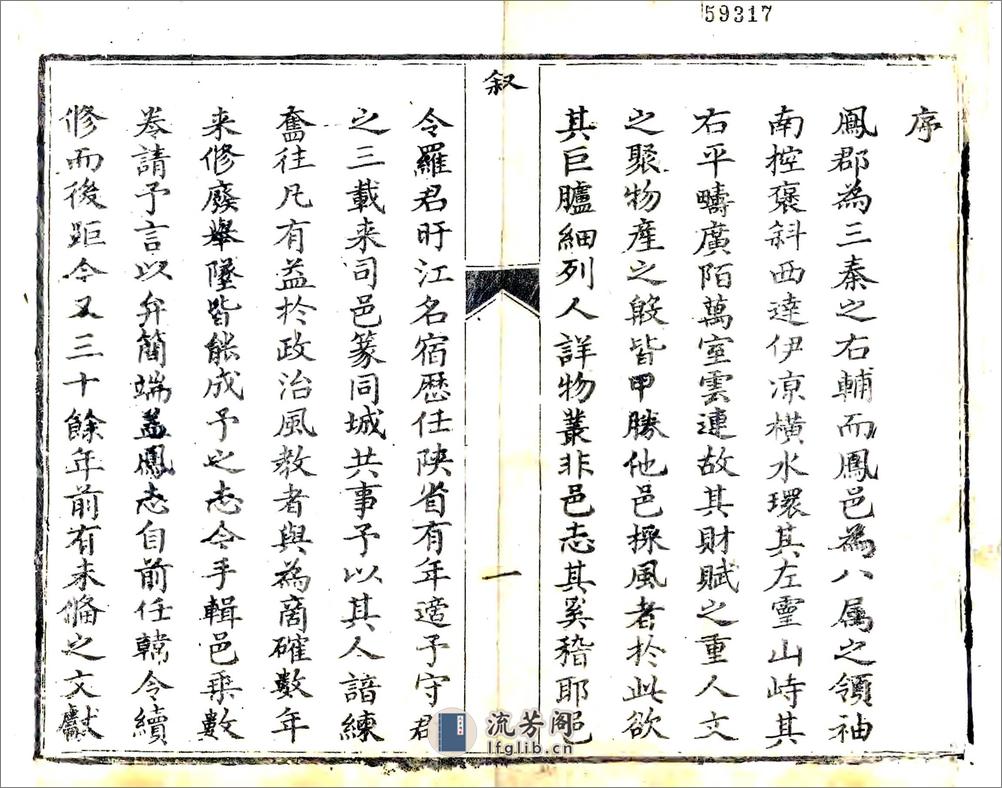 59317
序
鳳郡為三秦之右輔而鳳邑為八属之領袖
南控褒斜西達伊凉橫水環其左靈山峙其
右平疇廣陌萬室雲連故其財賦之重人文
之聚物產之殷皆甲勝他邑採風者於此欲
其巨臚細列人詳物叢非邑志其奚稽耶邑
叙
一
令羅君旴江名宿歷任陕省有年適予守君
之三載来司邑篆同城共事予以其人諳練
奮往凡有益於政治風教者與為商確数年
来修廢舉墜皆能成予之志令手輯邑乗數
卷請予言以弁簡端盖鳳志自前任韓令續
修而後距今又三十餘年前有未俻之文獻
流芳阁
lfglib.cn